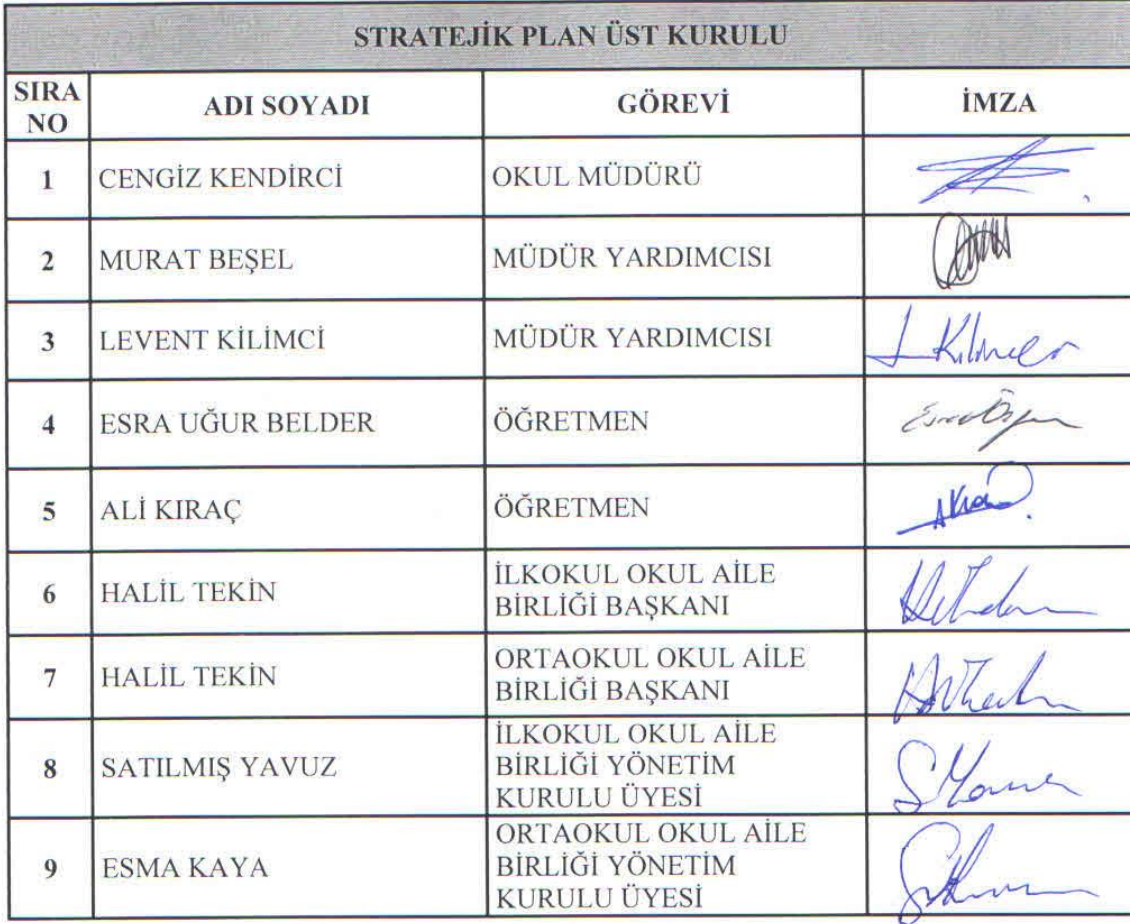 STRATEJİK PLAN ÜST KURULU
SIRA NO ADI SOYADI GÖREVİ İMZA
1 CENGİZ KENDİRCİ OKUL MÜDÜRÜ
2 MURAT BEŞEL MÜDÜR YARDIMCISI
3 LEVENT KİLİMCİ MÜDÜR YARDIMCISI
4 ESRA UĞUR BELDER ÖĞRETMEN
5 ALİ KIRAÇ ÖĞRETMEN
6 HALİL TEKİN İLKOKUL OKUL AİLE
BİRLİĞİ BAŞKANI
7 HALİL TEKİN ORTAOKUL OKUL AİLE
BİRLİĞİ BAŞKANI
8 SATILMIŞ YAVUZ İLKOKUL OKUL AİLE
BİRLİĞİ YÖNETİM
KURULU ÜYESİ
9 ESMA KAYA ORTAOKUL OKUL AİLE
BİRLİĞİ YÖNETİM
KURULU ÜYESİ